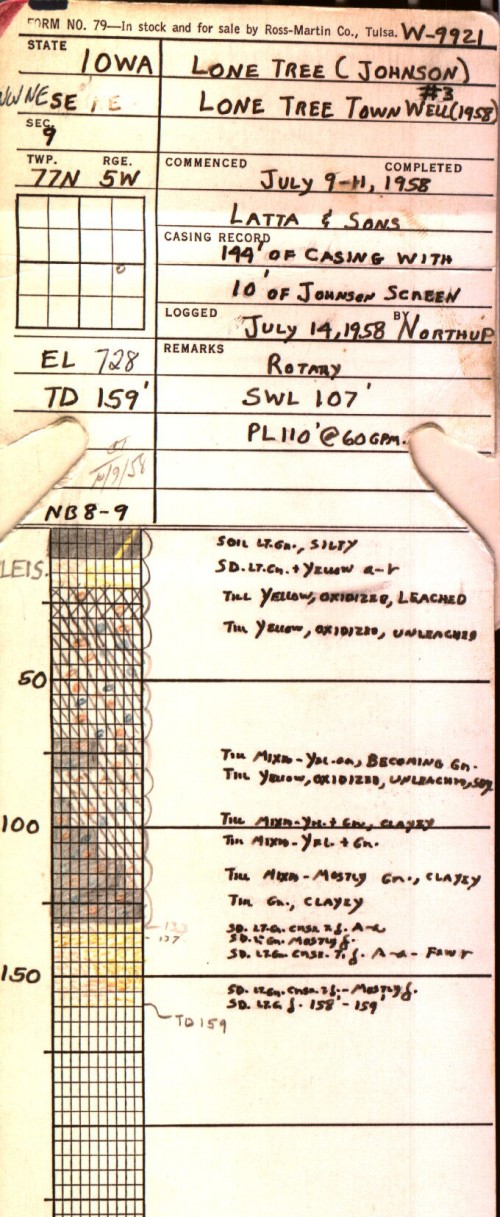 FORM NO. 79—In stock and for sale by Ross-Martin Co., Tulsa. W-9921
STATE
IOWA
LONE TREE (JOHNSON)
#3
NW NE SE
LONE TREE TOWN WELL (1958)
SEC.
9
TWP. RGE.
77N 5W
COMMENCED COMPLETED
JULY 9-11, 1958
LATTA & SONS
CASING RECORD
144' OF CASING WITH
10' OF JOHNSON SCREEN
LOGGED BY
JULY 14, 1958 NORTHUP
EL 728
REMARKS
ROTARY
TD 159'
SWL 107'
PL 110' @ 60 GPM.
NB 8-9
SOIL LT. GN., SILTY
LEIS.
SD. LT. GN. + YELLOW a-r
TILL YELLOW, OXIDIZED, LEACHED
TILL YELLOW, OXIDIZED, UNLEACHED
50
TILL MIXED-YEL-GN, BECOMING GN.
TILL YELLOW, OXIDIZED, UNLEACHED,
TILL MIXED-YEL. + GN., CLAYEY
100
TILL MIXED-YEL. + GN.
TILL MIXED-MOSTLY GN., CLAYEY
TILL GN., CLAYEY
133
SD. LT. GN. CRSE. T. f. A-r
137
SD. LT. GN. MOSTLY f.
SD. LT. GN. CRSE. T. f. A-a- FEW r
150
SD. LT. GN. CRSE. T. f. - MOSTLY f.
SD. LT. G. f. 158'-159'
TD 159